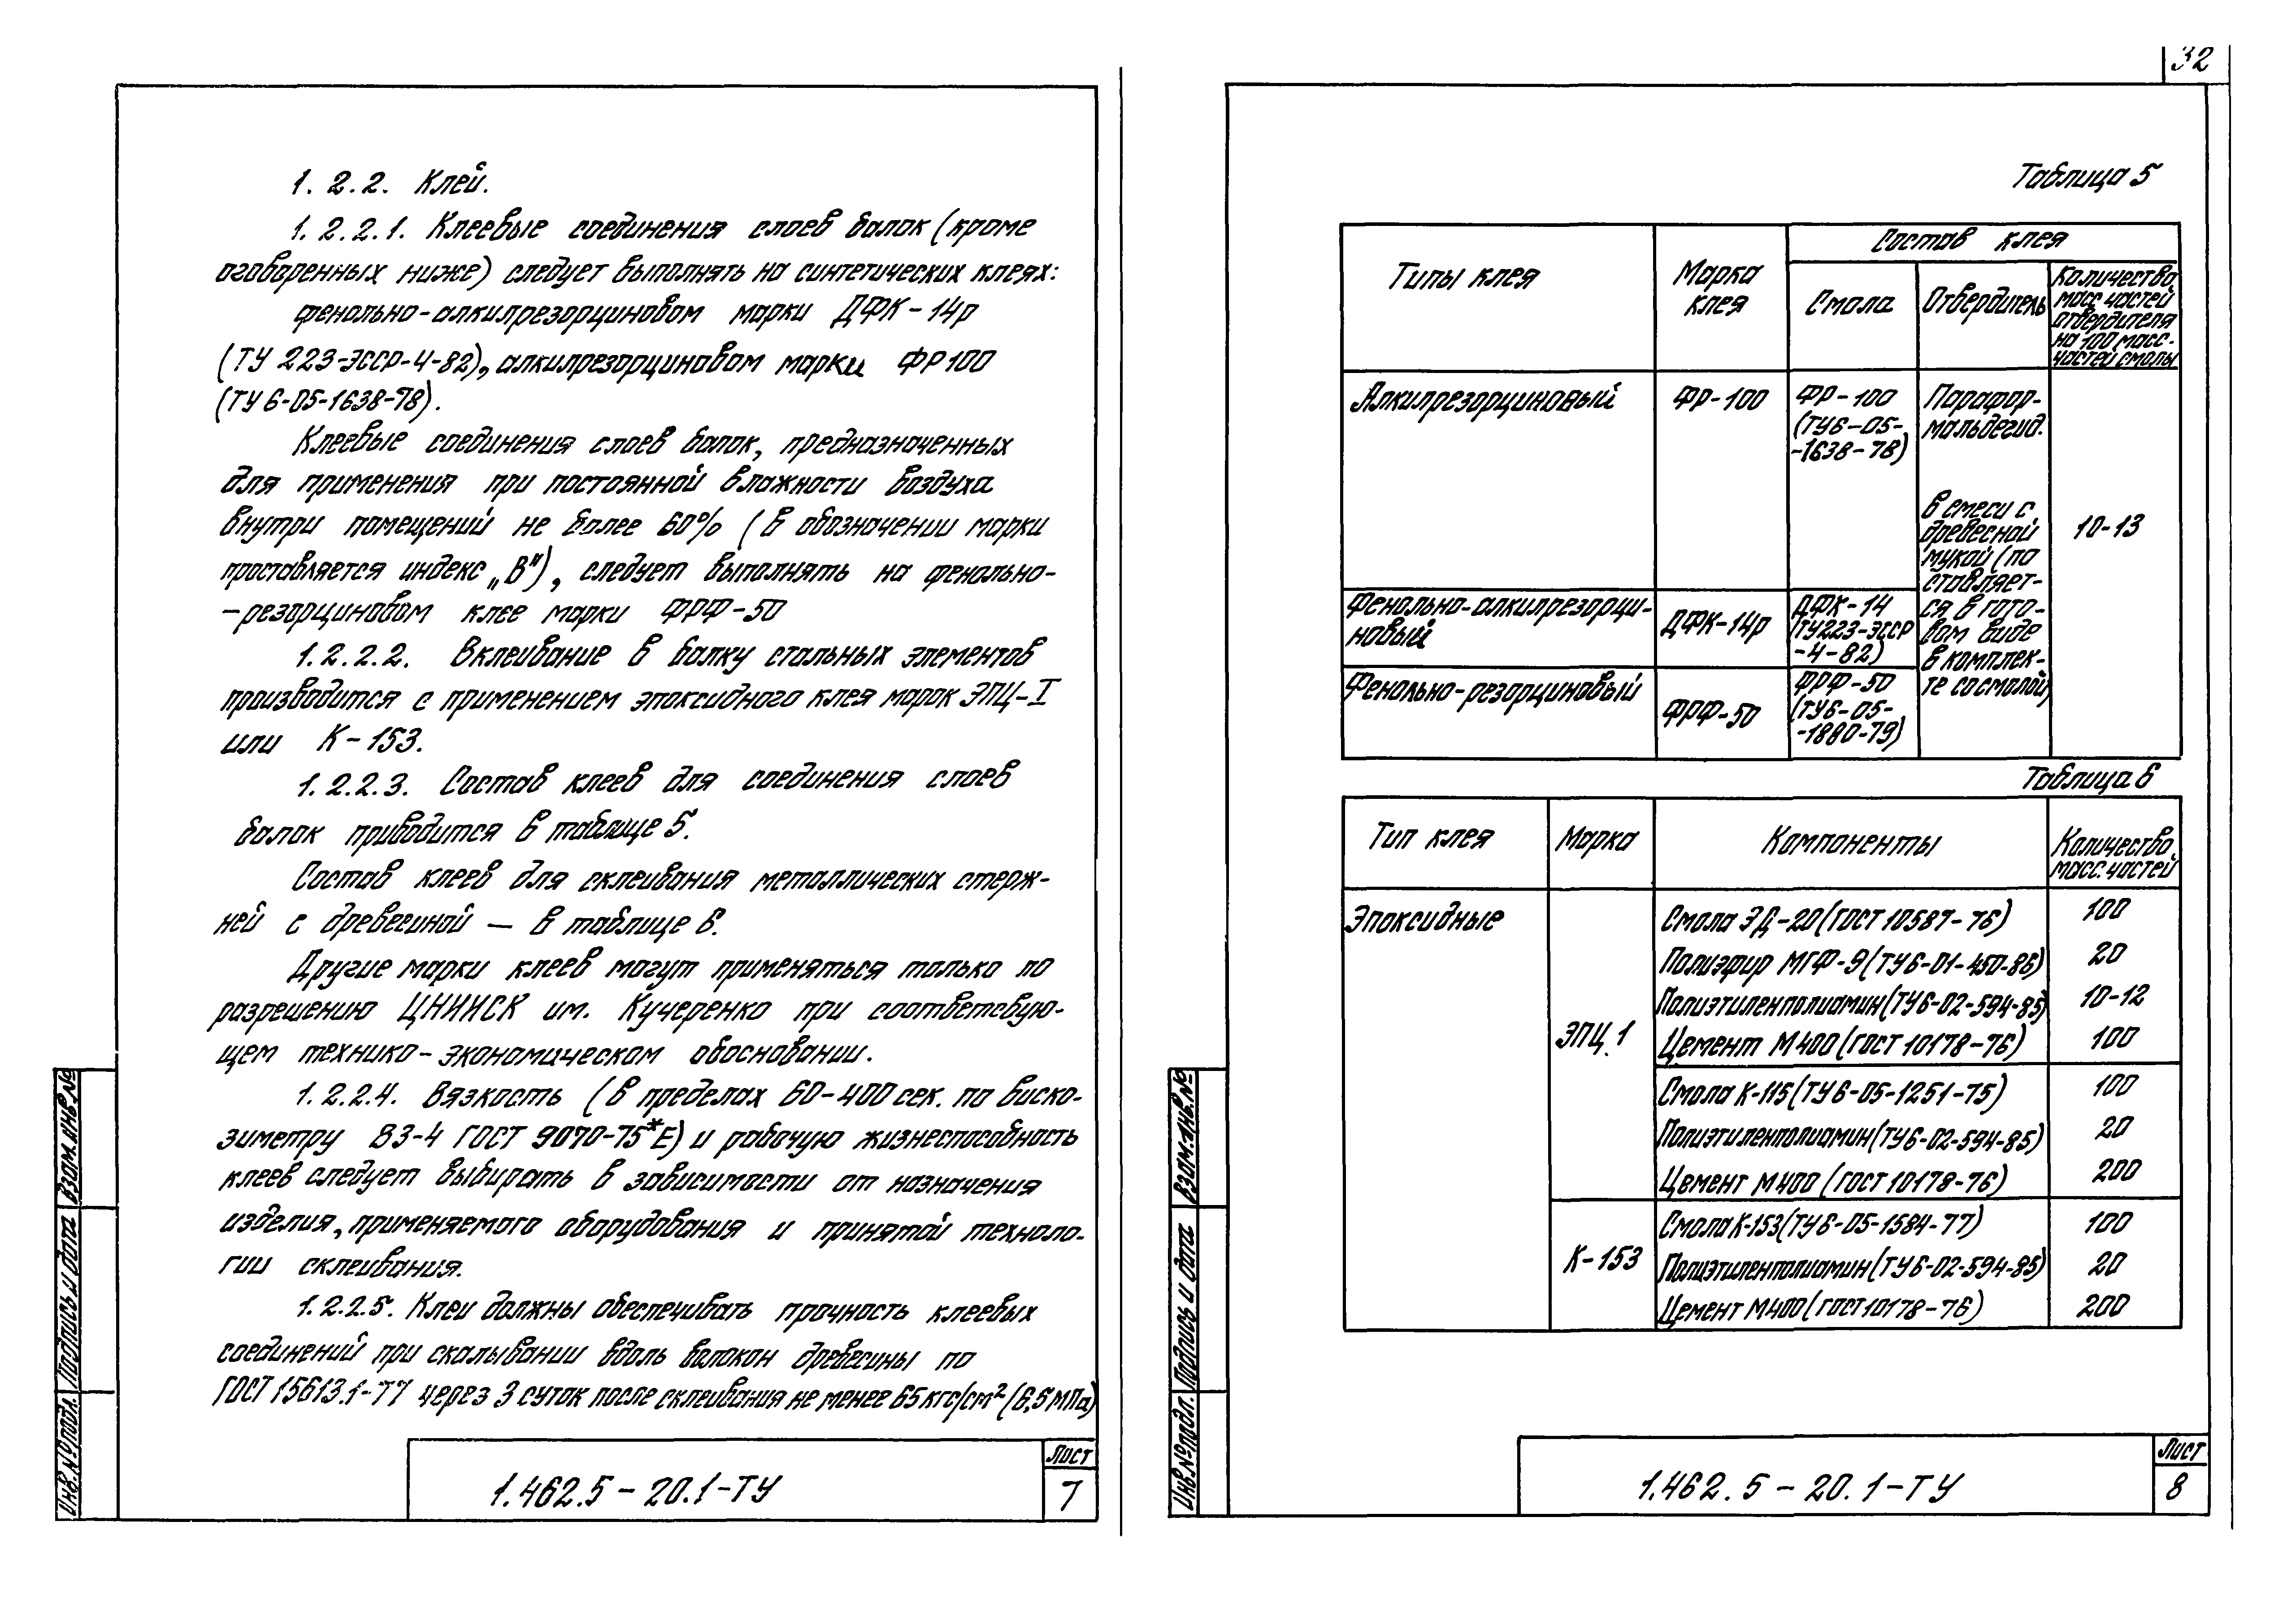 1.2.2. Клей.
1.2.2.1. Клеевые соединения слоев балок (кроме
оговоренных ниже) следует выполнять на синтетических клеях:
фенольно-алкилрезорциновом марки ДФК-14р
(ТУ 223-ЭССР-4-82), алкилрезорциновом марки ФР100
(ТУ 6-05-1638-78).
Клеевые соединения слоев балок, предназначенных
для применения при постоянной влажности воздуха
внутри помещений не более 60% (в обозначении марки
проставляется индекс „В"), следует выполнять на фенольно-
-резорциновом клее марки ФРФ-50
1.2.2.2. Вклеивание в балку стальных элементов
производится с применением эпоксидного клея марок ЭПЦ-I
или К-153.
1.2.2.3. Состав клеев для соединения слоев
балок приводится в таблице 5.
Состав клеев для склеивания металлических стерж-
ней с древесиной — в таблице 6.
Другие марки клеев могут применяться только по
разрешению ЦНИИСК им. Кучеренко при соответсвую-
щем технико-экономическом обосновании.
1.2.2.4. Вязкость (в пределах 60-400 сек. по виско-
зиметру ВЗ-4 ГОСТ 9070-75*Е) и рабочую жизнеспособность
клеев следует выбирать в зависимости от назначения
изделия, применяемого оборудования и принятой техноло-
гии склеивания.
1.2.2.5. Клеи должны обеспечивать прочность клеевых
соединений при скалывании вдоль волокон древесины по
ГОСТ 15613.1-77 через 3 суток после склеивания не менее 65 кгс/см² (6,5 МПа)
Инв.№ подл. Подпись и дата Взам.инв.№
1.462.5-20.1-ТУ
Лист
7
32
Таблица 5
Типы клея
Марка
клея
Состав клея
Смола
Отвердитель
Количество
масс частей
отвердителя
на 100 масс-
частей смолы
Алкилрезорциновый
ФР-100
ФР-100
(ТУ6-05-
-1638-78)
Парафор-
мальдегид.
в смеси с
древесной
мукой (по
ставляет-
ся в гото-
вом виде
в комплек-
те со смолой)
10-13
Фенольно-алкилрезорци-
новый
ДФК-14р
ДФК-14
(ТУ223-ЭССР
-4-82)
Фенольно-резорциновый
ФРФ-50
ФРФ-50
(ТУ6-05-
-1880-79)
Таблица 6
Тип клея
Марка
Компоненты
Количество
масс.частей
Эпоксидные
ЭПЦ.1
Смола ЭД-20 (ГОСТ 10587-76) 100
Полиэфир МГФ-9 (ТУ6-01-450-86) 20
Полиэтиленполиамин (ТУ6-02-594-85) 10-12
Цемент М400 (ГОСТ 10178-76) 100
Смола К-115 (ТУ6-05-1251-75) 100
Полиэтиленполиамин (ТУ6-02-594-85) 20
Цемент М400 (ГОСТ 10178-76) 200
К-153
Смола К-153 (ТУ6-05-1584-77) 100
Полиэтиленполиамин (ТУ6-02-594-85) 20
Цемент М400 (ГОСТ 10178-76) 200
Инв.№ подл. Подпись и дата Взам.инв.№
1.462.5-20.1-ТУ
Лист
8